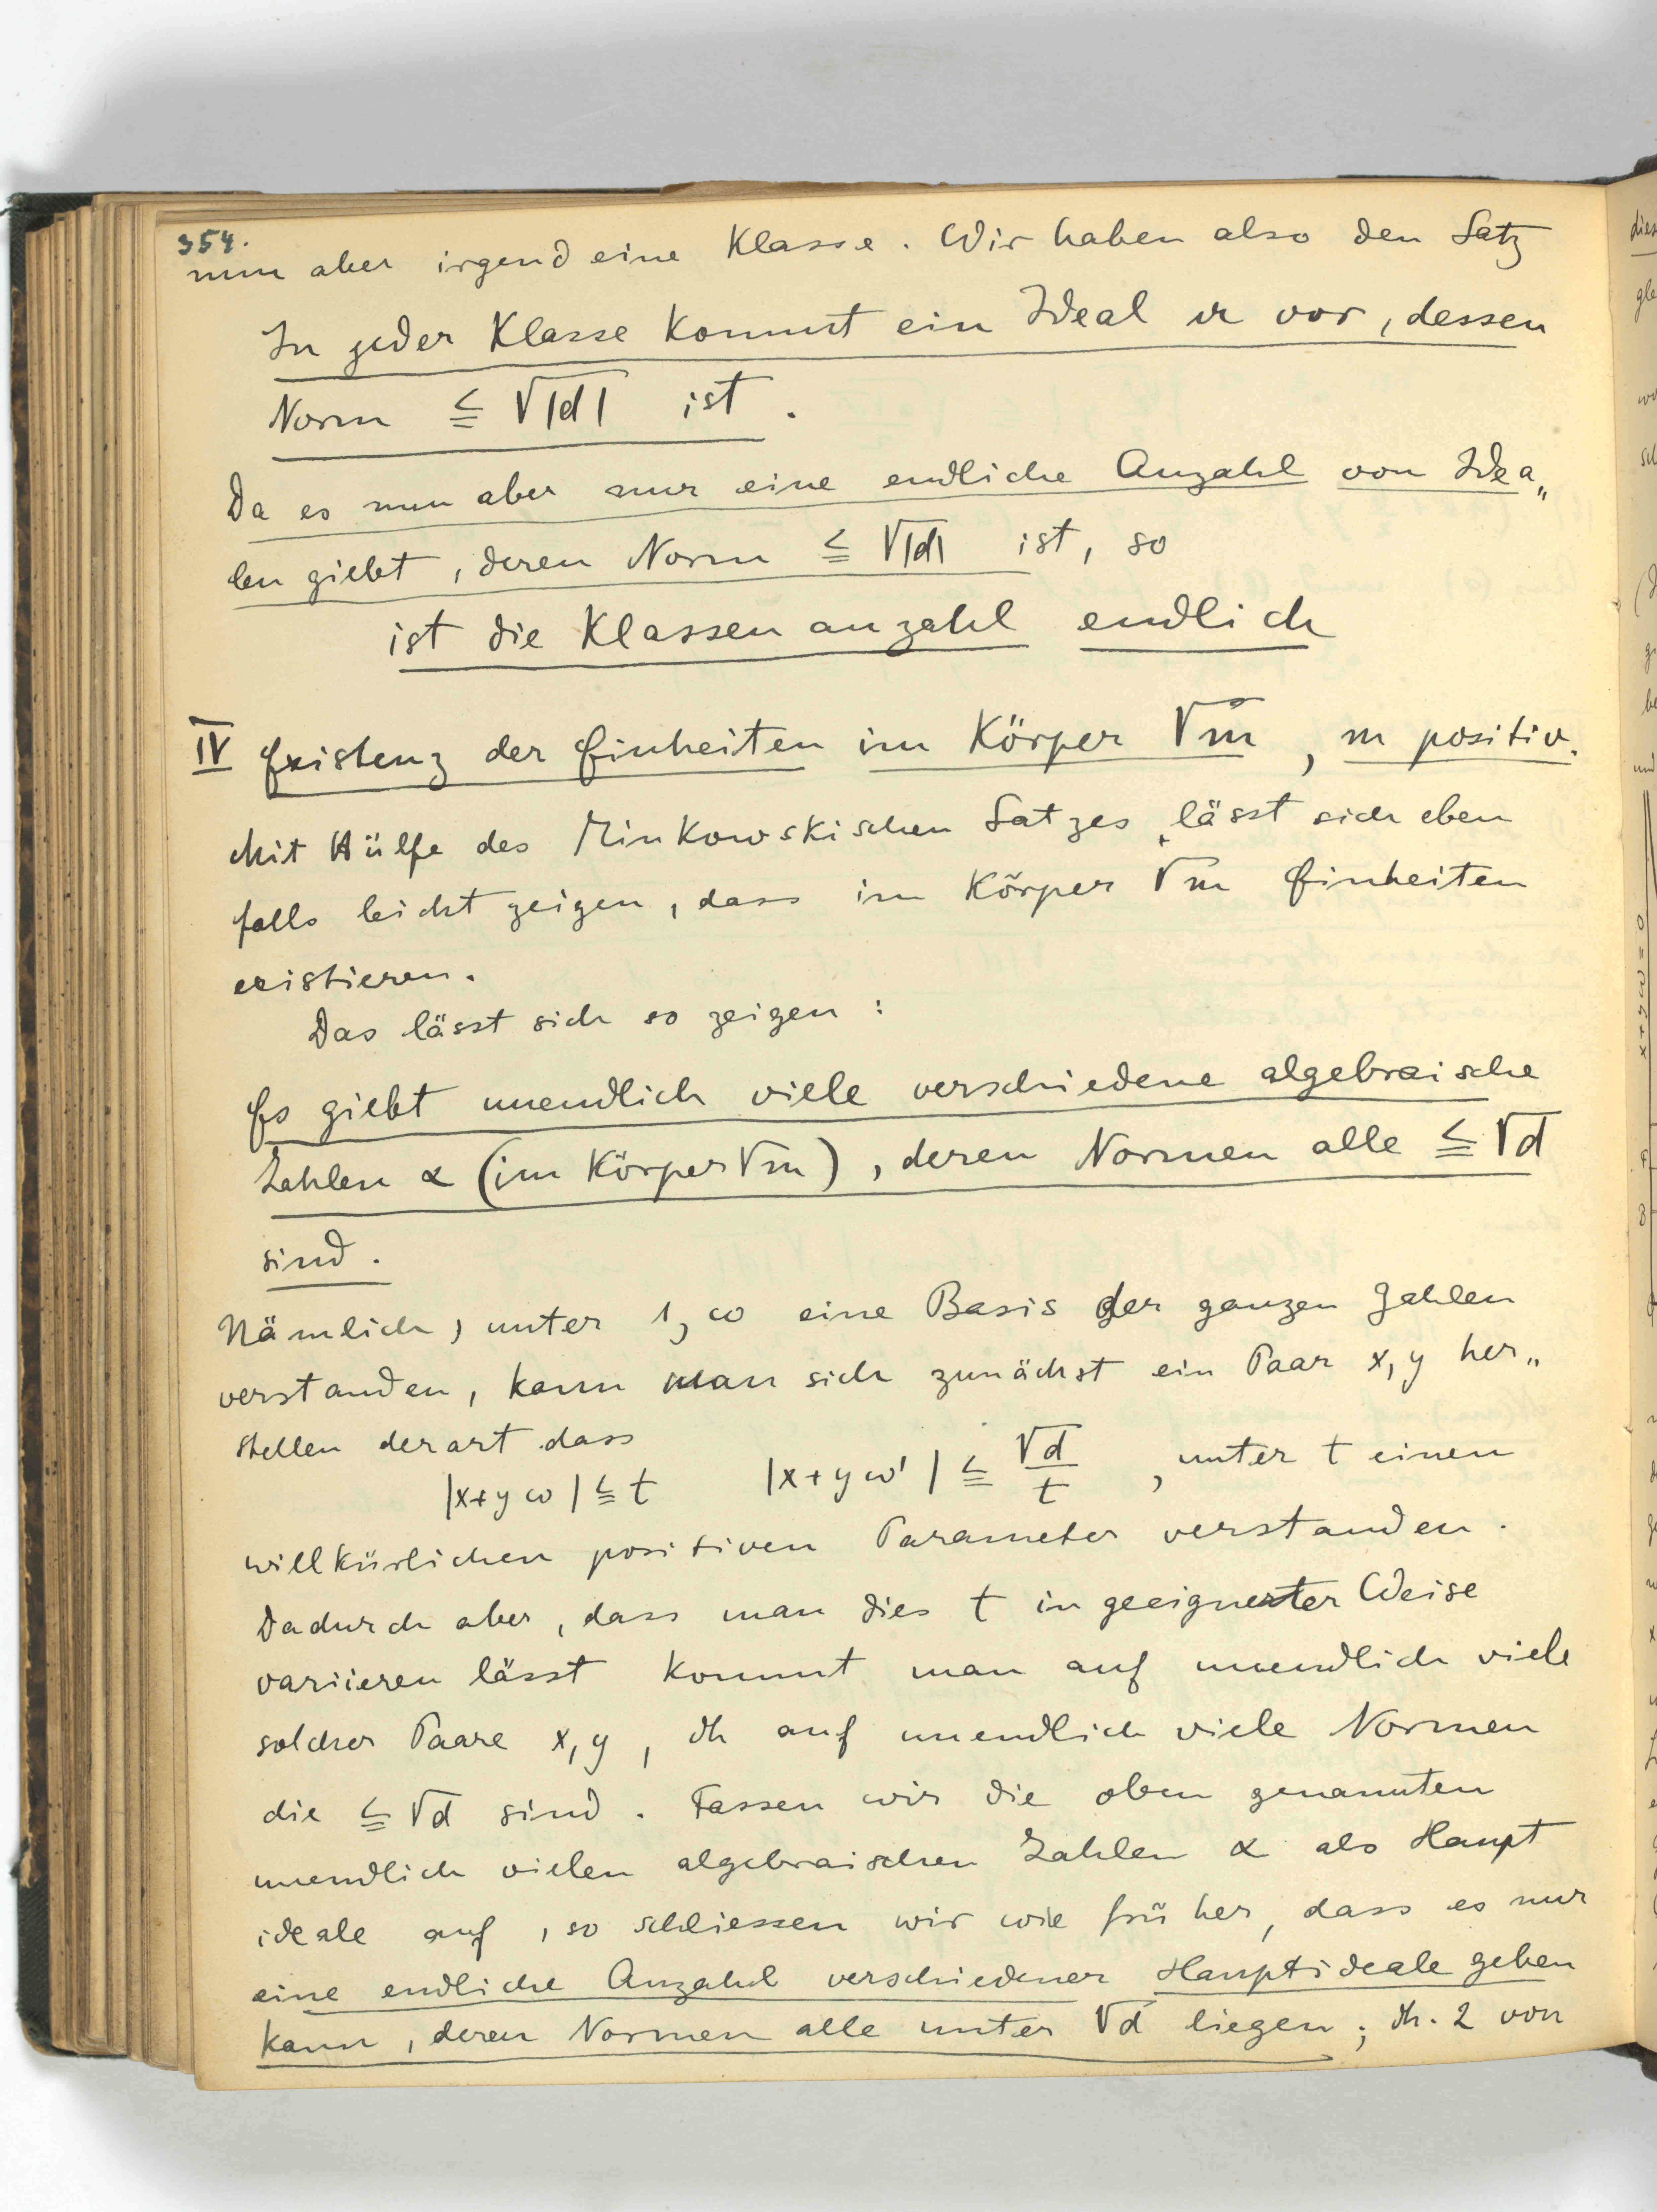 354.
nun aber irgend eine Klasse. Wir haben also den Satz
In jeder Klasse kommt ein Ideal vor, dessen
Norm ≦ √|d| ist.
Da es nun aber nur eine endliche Anzahl von Idea„
len giebt, deren Norm ≦ √|d| ist, so
ist die Klassenanzahl endlich
IV Existenz der Einheiten im Körper √m, m positiv.
Mit Hülfe des Minkowskischen Satzes lässt sich eben
falls leicht zeigen, dass im Körper √m Einheiten
existieren.
Das lässt sich so zeigen:
Es giebt unendlich viele verschiedene algebraische
Zahlen α (im Körper √m), deren Normen alle ≦ √d
sind.
Nämlich, unter 1, ω eine Basis der ganzen Zahlen
verstanden, kann man sich zunächst ein Paar x, y her„
stellen derart dass
|x+yω| ≦ t |x+yω'| ≦ √d/t, unter t einen
willkürlichen positiven Parameter verstanden.
Dadurch aber, dass man dies t in geeigneter Weise
variieren lässt kommt man auf unendlich viele
solcher Paare x, y, dh auf unendlich viele Normen
die ≦ √d sind. Fassen wir die oben genannten
unendlich vielen algebraischen Zahlen α als Haupt
ideale auf, so schliessen wir wie früher, dass es nur
eine endliche Anzahl verschiedener Hauptideale geben
kann, deren Normen alle unter √d liegen; dh. 2 von
x+yω=0